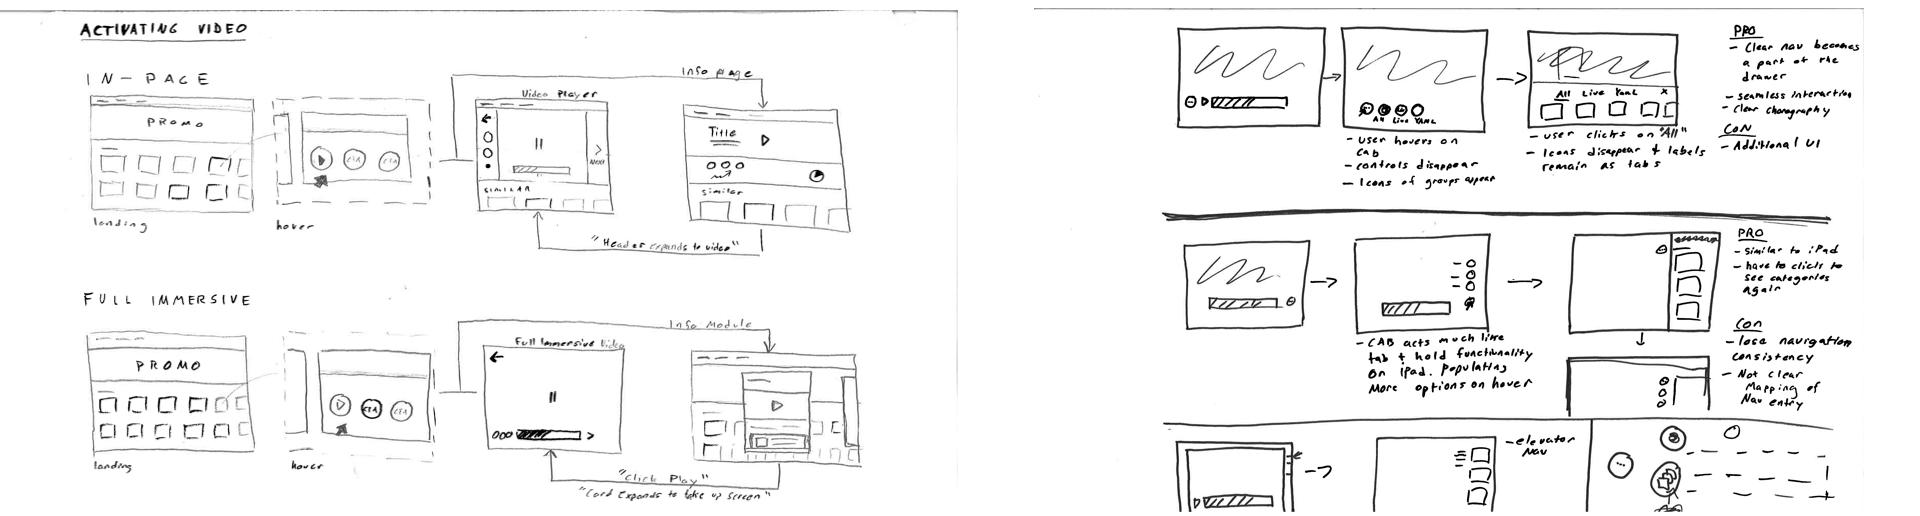 ACTIVATING VIDEO
IN-PAGE
PROMO
landing
hover
CTA
CTA
Video Player
NEXT
SIMILAR
Info page
Title
similar
"Header expands to video"
FULL IMMERSIVE
PROMO
landing
CTA
CTA
hover
Full Immersive Video
Info Module
"Click Play"
"Card Expands to take up screen"
All Live YAML
- user hovers on
CAB
- controls disappear
- Icons of groups appear
All Live YAML X
- user clicks on "All"
- Icons disappear & labels
remain as tabs
PRO
- Clear nav becomes
a part of the
drawer
- seamless interaction
- Clear choreography
CON
- Additional UI
- CAB acts much like
tab & hold functionality
on ipad. populating
More options on hover
PRO
- similar to iPad
- have to click to
see categories
again
CON
- lose navigation
consistency
- Not clear
Mapping of
Nav entry
- elevator
Nav